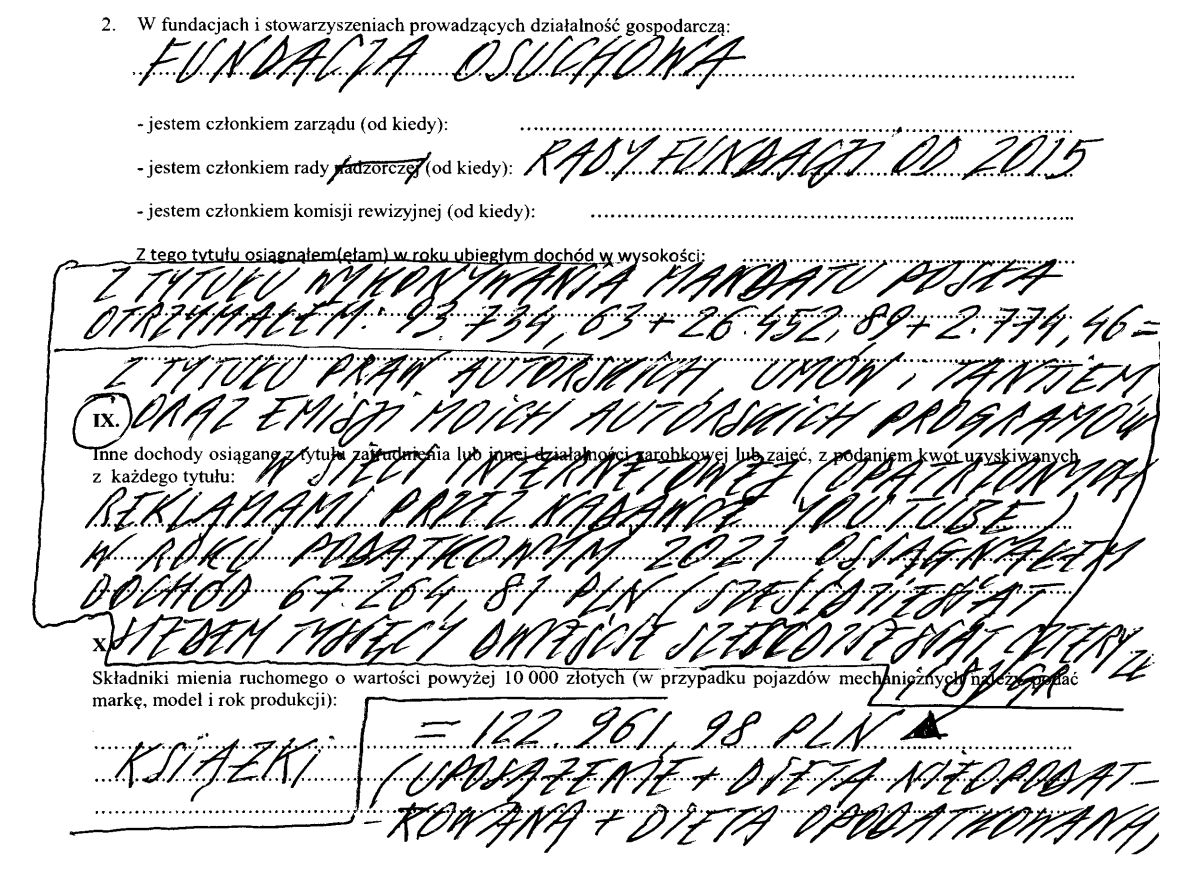 2. W fundacjach i stowarzyszeniach prowadzących działalność gospodarczą:
FUNDACJA OSUCHOWA
- jestem członkiem zarządu (od kiedy):
- jestem członkiem rady nadzorczej (od kiedy): RADY FUNDACJI OD 2015
- jestem członkiem komisji rewizyjnej (od kiedy):
Z tego tytułu osiągnąłem(ęłam) w roku ubiegłym dochód w wysokości:
Z TYTUŁU WYKONYWANIA MANDATU POSŁA
OTRZYMAŁEM: 93.734,63 + 26.452,89 + 2.774,46 =
Z TYTUŁU PRAW AUTORSKICH, UMÓW I TANTIEM
IX. ORAZ EMISJI MOICH AUTORSKICH PROGRAMÓW
Inne dochody osiągane z tytułu zatrudnienia lub innej działalności zarobkowej lub zajęć, z podaniem kwot uzyskiwanych
z każdego tytułu: W SIECI INTERNETOWEJ (OPATRIONYCH
REKLAMAMI PRZEZ NADAWCĘ YOUTUBE)
W ROKU PODATKOWYM 2021 OSIĄGNĄŁEM
DOCHÓD 67.264,81 PLN (SZEŚĆDZIESIĄT
X. SIEDEM TYSIĘCY DWIEŚCIE SZEŚĆDZIESIĄT CZTERY ZŁ
Składniki mienia ruchomego o wartości powyżej 10 000 złotych (w przypadku pojazdów mechanicznych należy podać
marką, model i rok produkcji): I 81/GR
= 122.961,98 PLN
KSIĄŻKI (UPOSAŻENIE + DIETA NIEOPODAT-
- KOWANA + DIETA OPODATKOWANA)